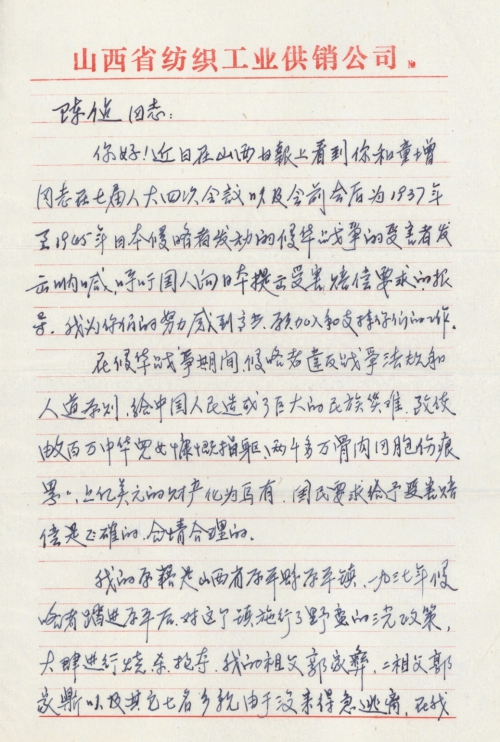 山西省纺织工业供销公司
陈健同志：
你好！近日在山西日報上看到你和童增
同志在七届人大四次会议以及会前会后为1937年
至1945年日本侵略者发动的侵华战争的受害者发
出呐喊，呼吁国人向日本提出受害赔偿要求的报
导。我为你们的努力感到高兴。愿加入和支持你们的工作。
在侵华战争期间，侵略者违反战争法规和
人道原则，给中国人民造成了巨大的民族灾难，致使
百万中华儿女慷慨捐躯、两千多万骨肉同胞伤痕
累累、上亿美元的财产化为乌有，国民要求给予受害赔
偿是正确的、合情合理的。
我的原藉是山西省原平县原平镇，一九三七年侵
略者踏进原平后，对这个镇施行了野蛮的三光政策，
大肆进行烧、杀、抢夺，我的祖父郭家彝，二祖父郭
家鼎以及其它七名乡亲由于没来得急逃离，在我